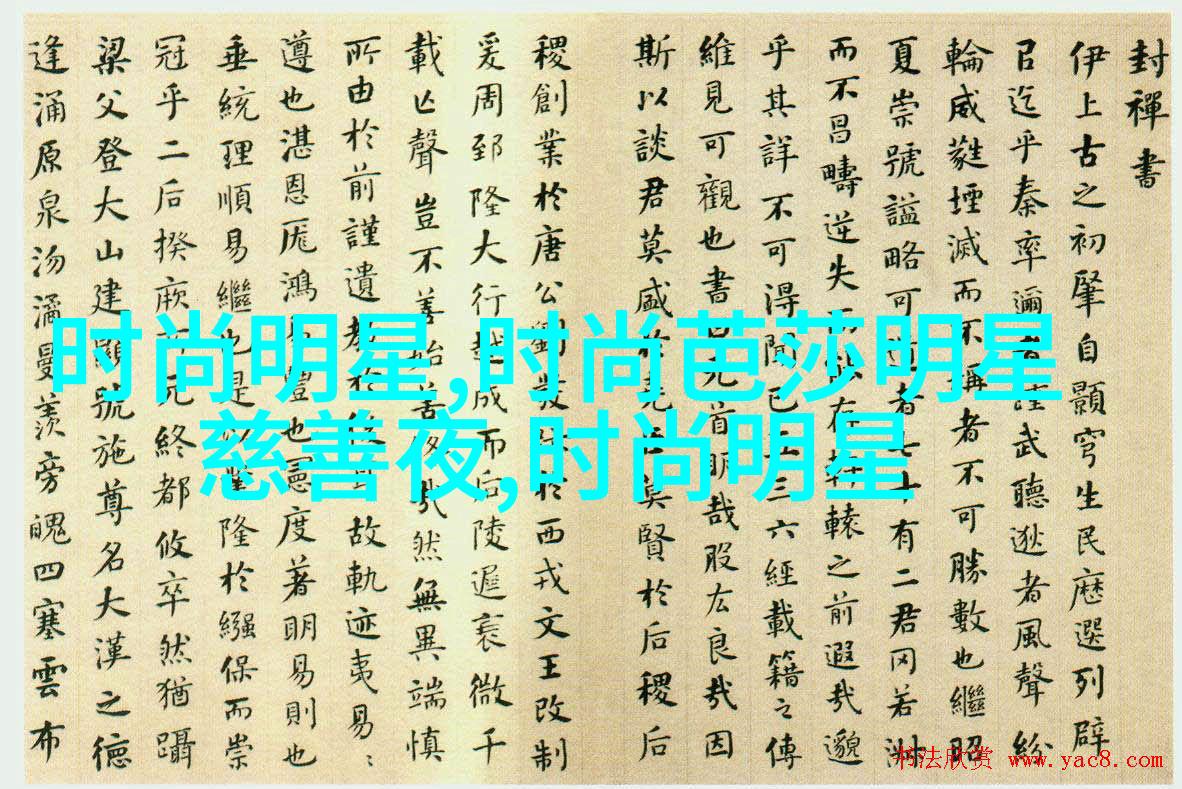 封禪書
伊上古之初肇自顥穹生民歷選列辟
以迄乎秦率邇者踵武聽逖者風聲紛
輪威蕤堙滅而不稱者不可勝數也繼昭
夏崇號謚略可道者七十有二君罔若淑
而不昌疇逆失而能存軒轅之前遐哉邈
乎其詳不可得聞已五三六經載籍之傳
維見可觀也書曰元首明哉股肱良哉因
斯以談君莫盛於堯臣莫賢於后稷后
稷創業於唐公劉發跡於西戎文王改制
爰周郅隆大行越成而后陵遲衰微千
載亡聲豈不善始善終哉然無異端慎
所由於前謹遺教於後耳故軌迹夷易
遵也湛恩厖鴻易豐也憲度著明易則也
垂統理順易繼也是以業隆於繈保而崇
冠乎二后揆厥所元終都攸卒然猶躡
梁父登大山建顯號施尊名大漢之德
逢涌原泉沕潏曼羨旁魄四塞雲布
时尚明星,时尚芭莎明星
慈善夜,时尚明星
书法欣赏 www.yac8.com